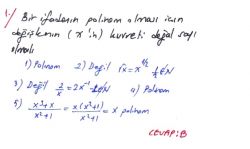 1.) Bir ifadenin polinom olması için
değişkenin (x'in) kuvveti doğal sayı
olmalı
1) Polinom 2) Değil √x = x^{1/2} 1/2 ∉ N
3) Değil 2/x = 2x^{-1} -1 ∉ N 4) Polinom
5) \frac{x^3+x}{x^2+1} = \frac{x(x^2+1)}{x^2+1} = x polinom
CEVAP: B